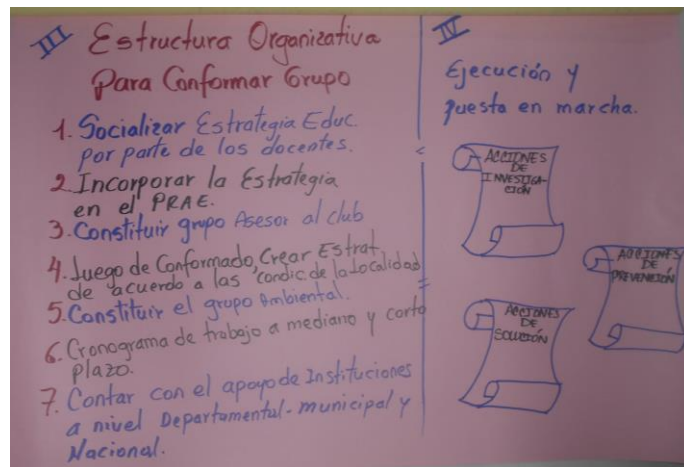 III Estructura Organizativa
Para Conformar Grupo
1. Socializar Estrategia Educ.
por parte de los docentes.
2 Incorporar la Estrategia
en el PRAE.
3. Constituir grupo Asesor al club
4. Luego de Conformado, Crear Estrat.
de acuerdo a las condic. de la localidad
5. Constituir el grupo Ambiental.
6. Cronograma de trabajo a mediano y corto
plazo.
7. Contar con el apoyo de Instituciones
a nivel Departamental - municipal y
Nacional.
IV
Ejecución y
puesta en marcha.
ACCIONES
DE
INVESTIGA-
CIÓN
ACCIONES
DE
PREVENCIÓN
ACCIONES
DE
SOLUCIÓN